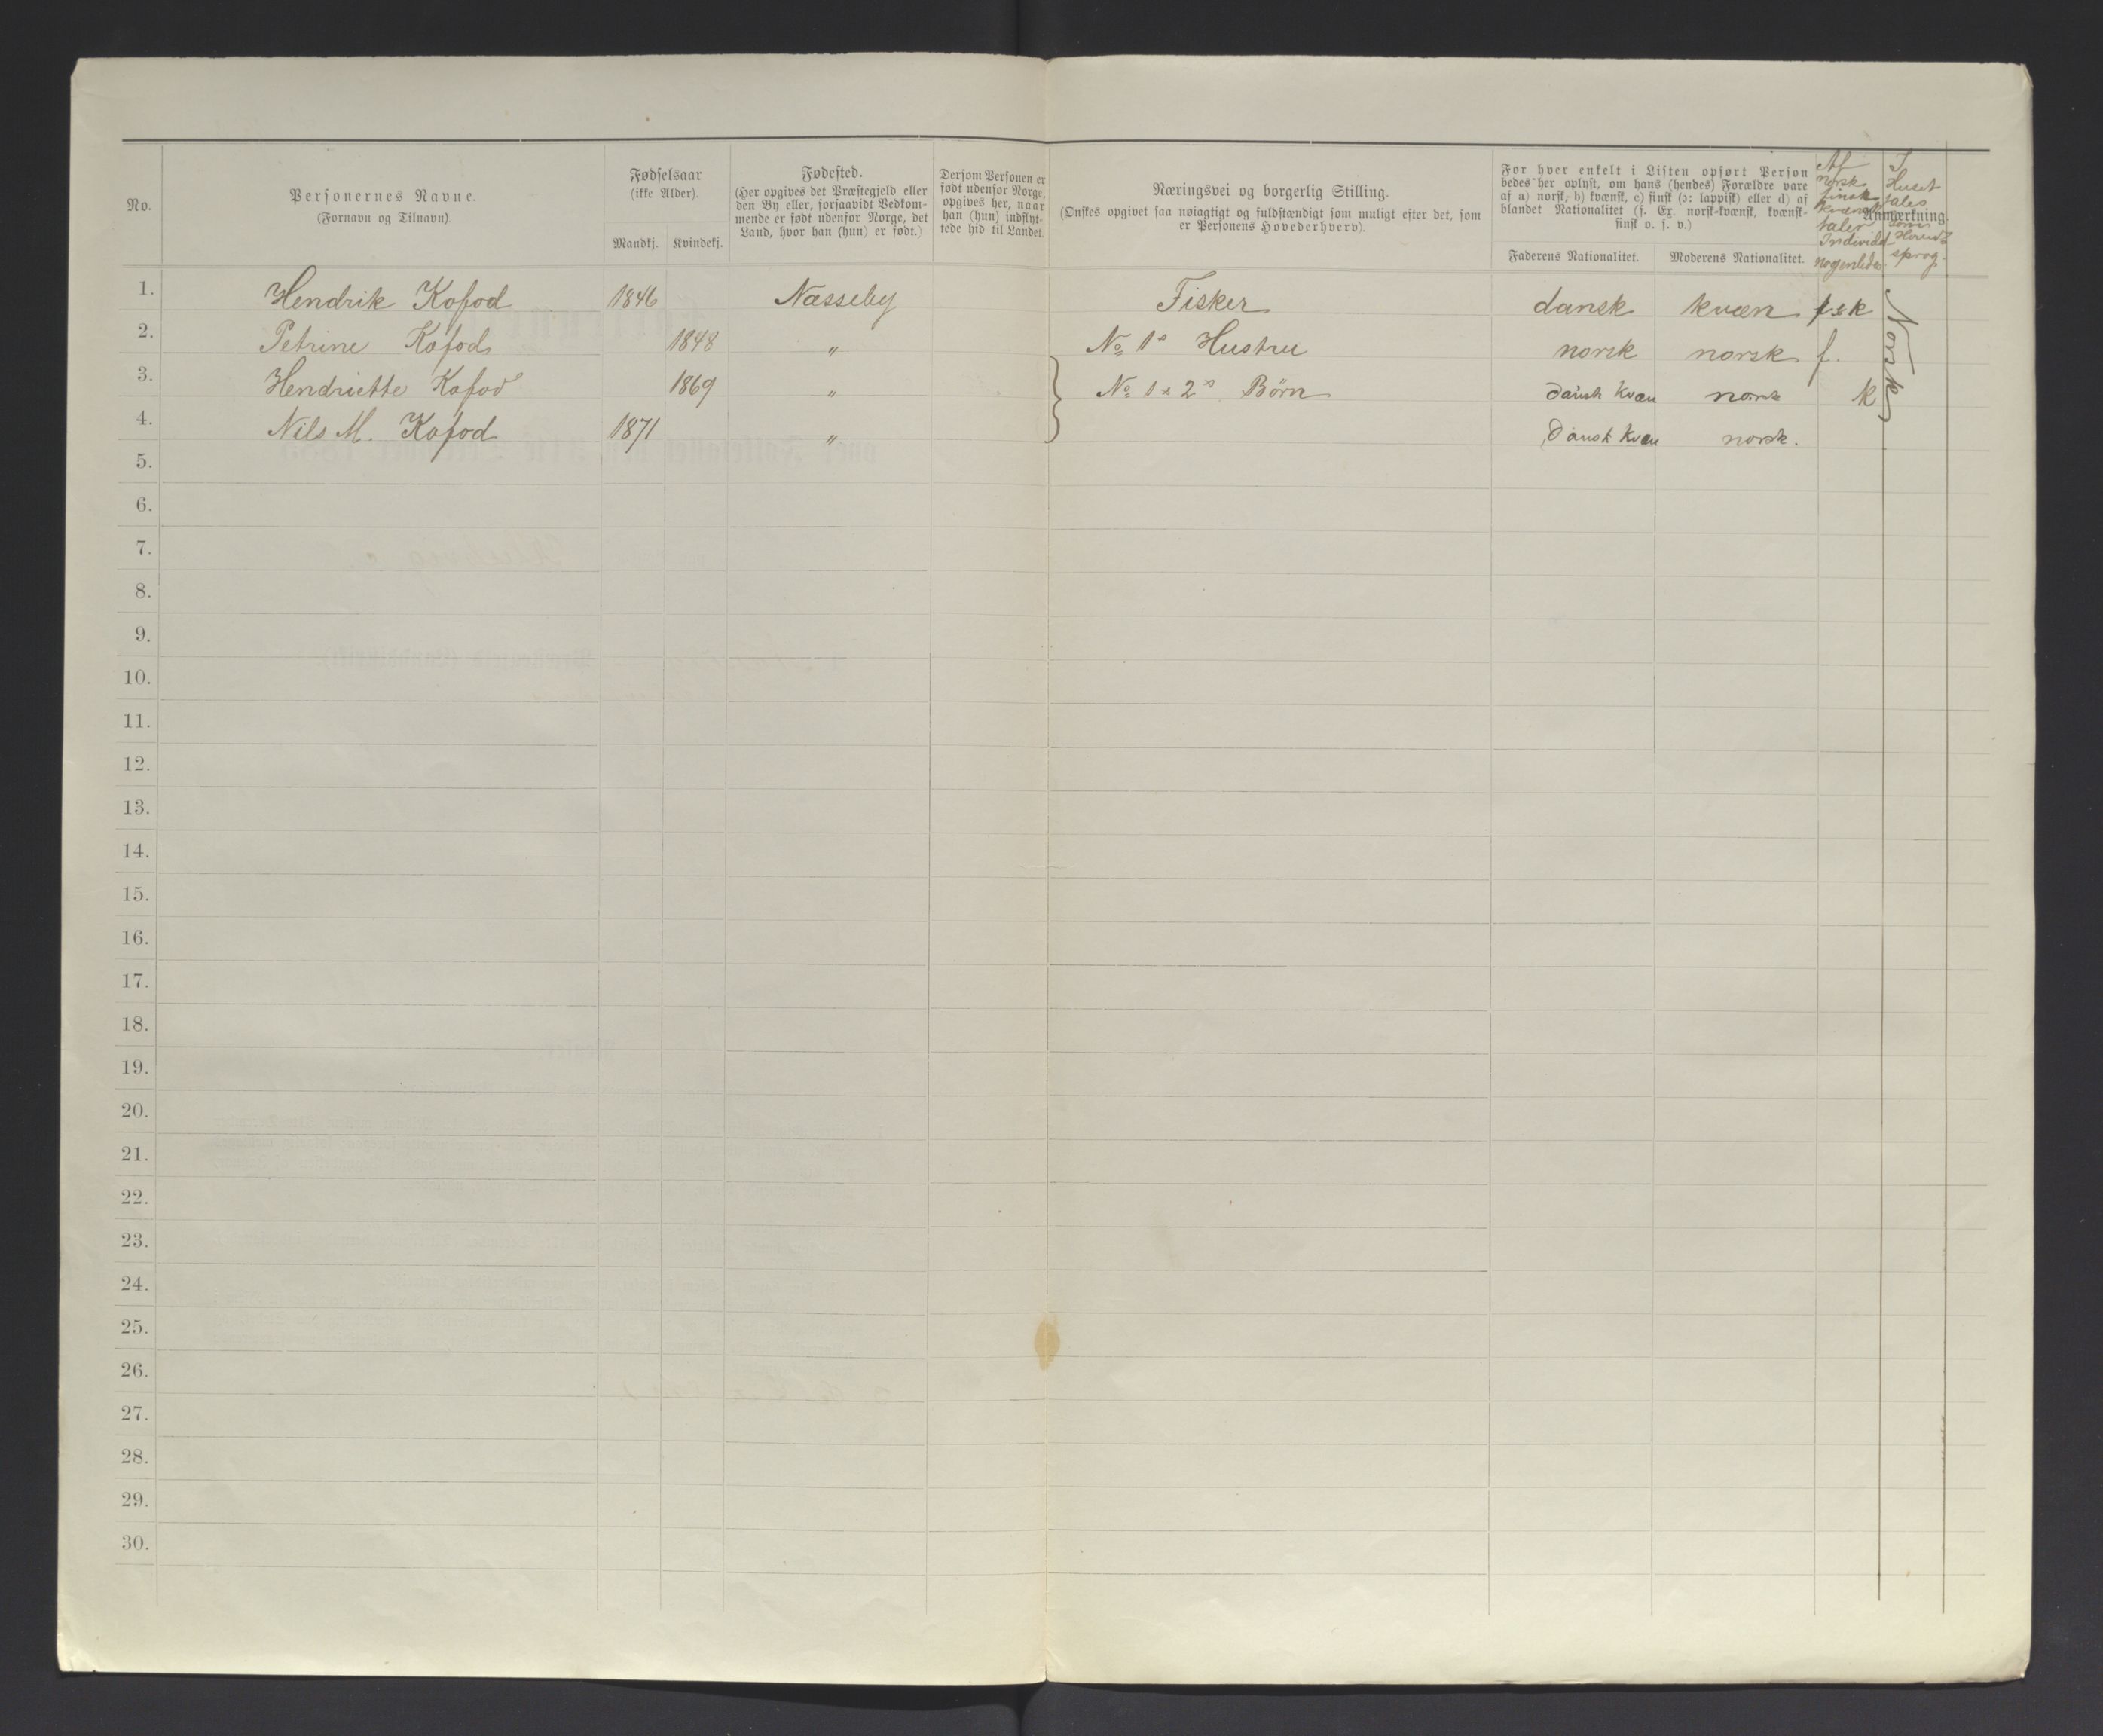 No.
Personernes Navne.
(Fornavn og Tilnavn)
Fødselsaar
(ikke Alder).
Mandkj. Kvindekj.
Fødested.
(Her opgives det Præstegjeld eller
den By eller, forsaavidt Vedkom-
mende er født udenfor Norge, det
Land, hvor han (hun) er født.)
Dersom Personen er
født udenfor Norge,
opgives her, naar
han (hun) indflyt-
tede hid til Landet.
Næringsvei og borgerlig Stilling.
(Ønskes opgivet saa nøiagtigt og fuldstændigt som muligt efter det, som
er Personens Hovederhverv).
For hver enkelt i Listen opført Person
bedes her oplyst, om hans (hendes) Forældre vare
af a) norsk, b) kvænsk, c) finsk (ɔ: lappisk) eller d) af
blandet Nationalitet (f. Ex. norsk-kvænsk, kvænsk-
finsk o. s. v.)
Faderens Nationalitet. Moderens Nationalitet.
Anmærkning.
Af
norsk
finsk
kvænsk
taler
Individet
nogenledes
I
Huset
tales
som
Hoved
sprog
1. Hendrik Kofod 1846 Næsseby Fisker dansk kvæn f & k
2. Petrine Kofod 1848 " No 1s Hustru norsk norsk f.
3. Hendriette Kofod 1869 " No 1 & 2s Børn Dansk Kvæn norsk k
4. Nils M. Kofod 1871 " Dansk Kvæn norsk.
Norsk
5.
6.
7.
8.
9.
10.
11.
12.
13.
14.
15.
16.
17.
18.
19.
20.
21.
22.
23.
24.
25.
26.
27.
28.
29.
30.